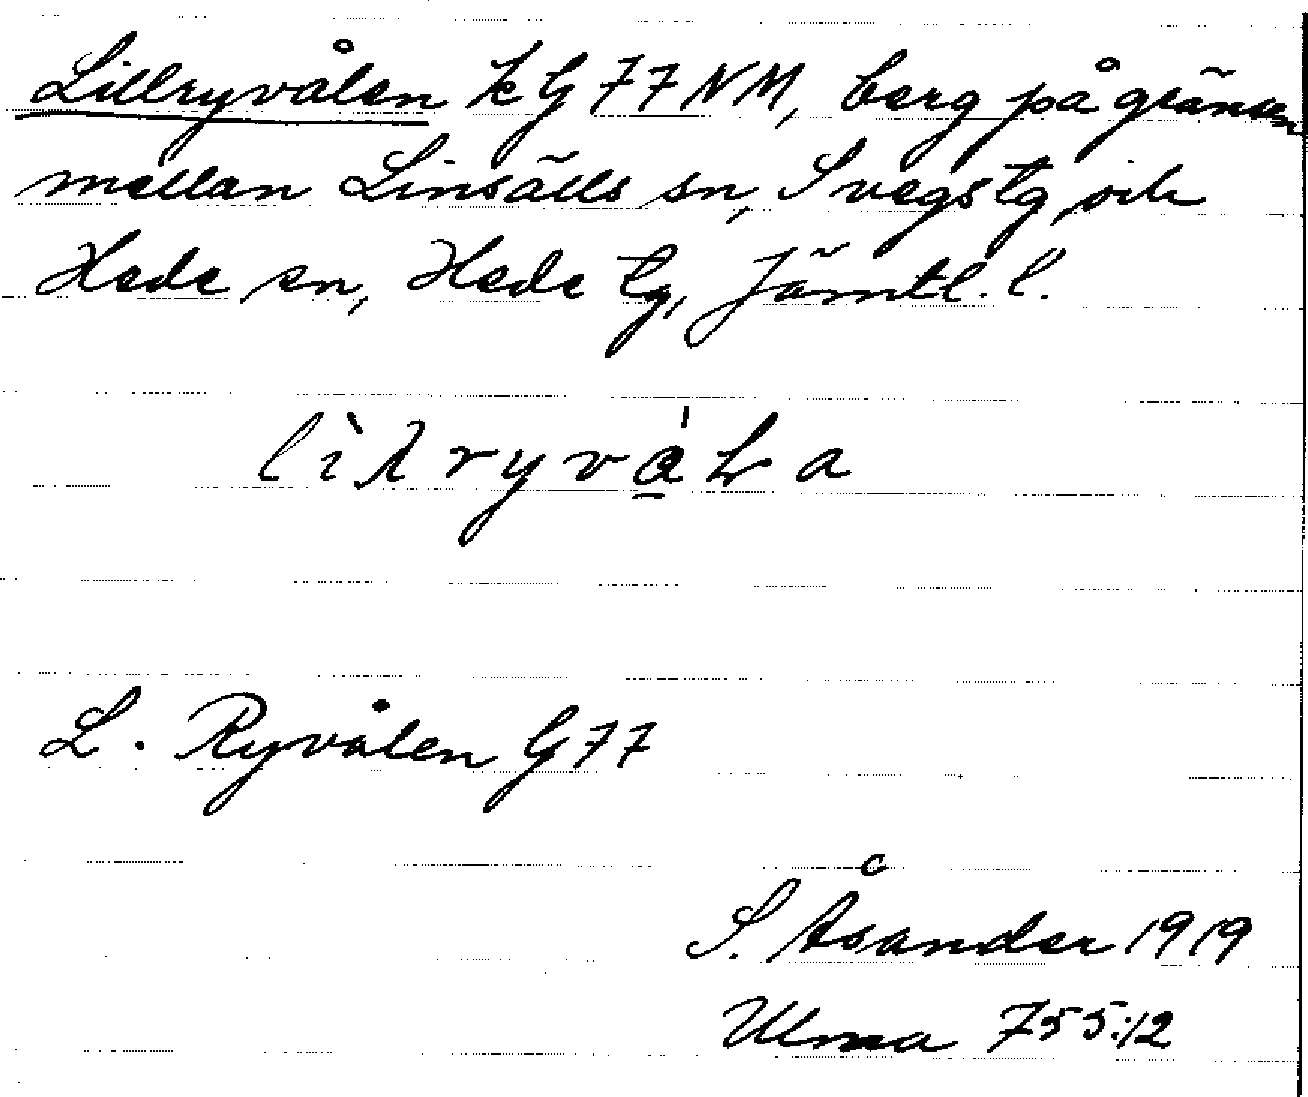 Lillryvålen k G 77 NM, berg på gränsen
mellan Linsälls sn, Svegs tg, och
Hede sn, Hede tg, Jämtl. l.
L. Ryvålen G 77
S. Åsander 1919
Ulma 755:12